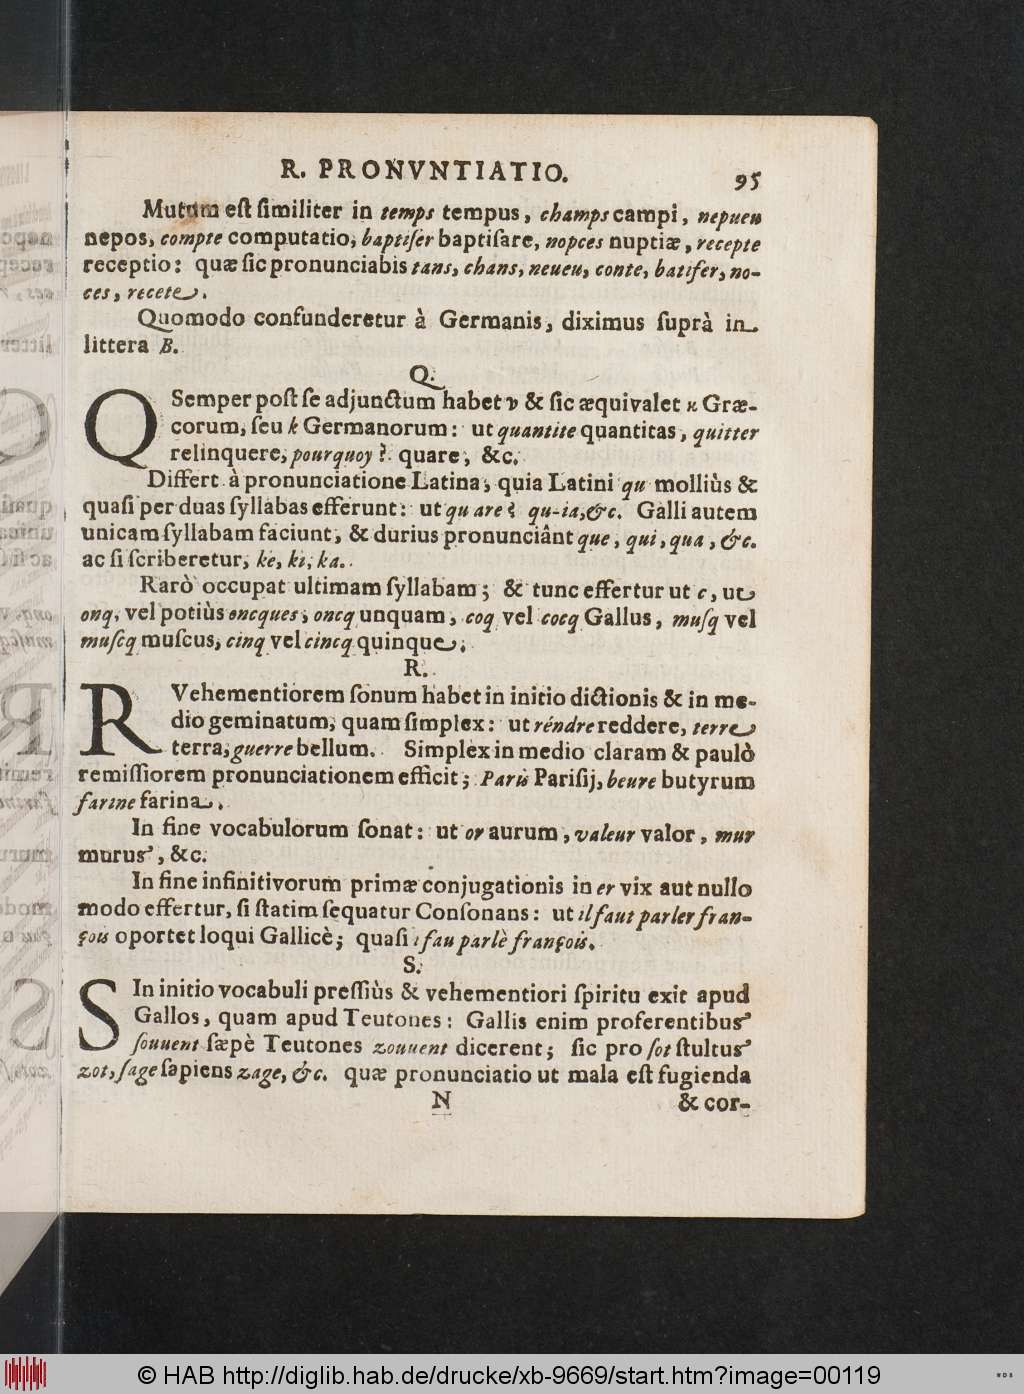 R. PRONVNTIATIO. 95
Mutum eſt ſimiliter in temps tempus, champs campi, nepueu
nepos, compte computatio, baptiſer baptiſare, nopces nuptiæ, recepte
receptio: quæ ſic pronunciabis tans, chans, neueu, conte, batiſer, no-
ces, recete.
Quomodo confunderetur à Germanis, diximus ſuprà in
littera B.
Q.
QSemper poſt ſe adjunctum habet v & ſic æquivalet κ Græ-
corum, ſeu k Germanorum: ut quantite quantitas, quitter
relinquere, pourquoy? quare, &c.
Differt à pronunciatione Latina, quia Latini qu molliùs &
quaſi per duas ſyllabas efferunt: ut qu are? qu-ia, &c. Galli autem
unicam ſyllabam faciunt, & durius pronunciânt que, qui, qua, &c.
ac ſi ſcriberetur, ke, ki, ka.
Rarò occupat ultimam ſyllabam; & tunc effertur ut c, ut
onq, vel potiùs oncques, oncq unquam, coq vel cocq Gallus, muſq vel
muſcq muſcus, cinq vel cincq quinque.
R.
RVehementiorem ſonum habet in initio dictionis & in me-
dio geminatum, quam ſimplex: ut réndre reddere, terre
terra, guerre bellum. Simplex in medio claram & paulò
remiſſiorem pronunciationem efficit; Paris Pariſij, beure butyrum
farine farina.
In fine vocabulorum ſonat: ut or aurum, valeur valor, mur
murus, &c.
In fine infinitivorum primæ conjugationis in er vix aut nullo
modo effertur, ſi ſtatim ſequatur Conſonans: ut il faut parler fran-
çois oportet loqui Gallicè; quaſi i fau parlè françois.
S.
SIn initio vocabuli preſſiùs & vehementiori ſpiritu exit apud
Gallos, quam apud Teutones: Gallis enim proferentibus
ſouuent ſæpè Teutones zouuent dicerent; ſic pro ſot ſtultus
zot, ſage ſapiens zage, &c. quæ pronunciatio ut mala eſt fugienda
N & cor-
© HAB http://diglib.hab.de/drucke/xb-9669/start.htm?image=00119